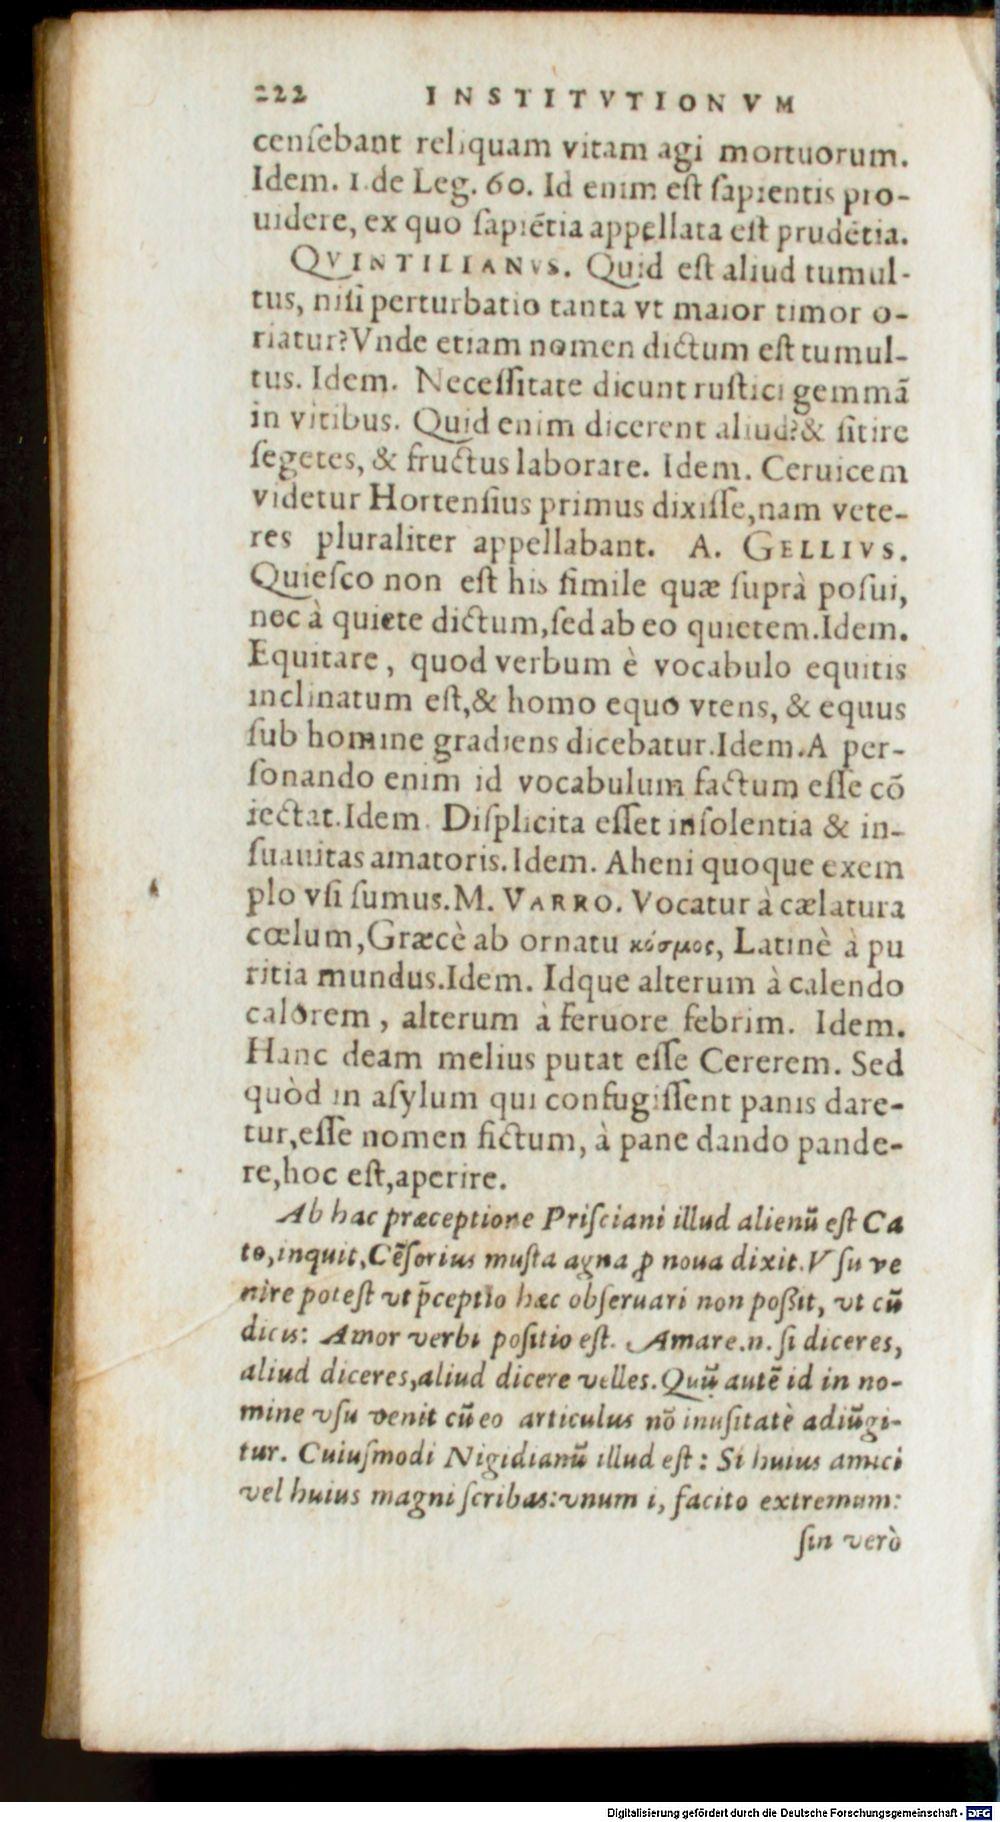 222 INSTITVTIONVM
censebant reliquam vitam agi mortuorum.
Idem. 1. de Leg. 60. Id enim est sapientis pro-
uidere, ex quo sapiẽtia appellata est prudẽtia.
QVINTILIANVS. Quid est aliud tumul-
tus, nisi perturbatio tanta vt maior timor o-
riatur? Vnde etiam nomen dictum est tumul-
tus. Idem. Necessitate dicunt rustici gemmã
in vitibus. Quid enim dicerent aliud? & sitire
segetes, & fructus laborare. Idem. Ceruicem
videtur Hortensius primus dixisse, nam vete-
res pluraliter appellabant. A. GELLIVS.
Quiesco non est his simile quæ suprà posui,
nec à quiete dictum, sed ab eo quietem. Idem.
Equitare, quod verbum è vocabulo equitis
inclinatum est, & homo equo vtens, & equus
sub homine gradiens dicebatur. Idem. A per-
sonando enim id vocabulum factum esse cõ
iectat. Idem. Displicita esset insolentia & in-
suauitas amatoris. Idem. Aheni quoque exem
plo vsi sumus. M. VARRO. Vocatur à cælatura
cœlum, Græcè ab ornatu κόσμος, Latinè à pu
ritia mundus. Idem. Idque alterum à calendo
calorem, alterum à feruore febrim. Idem.
Hanc deam melius putat esse Cererem. Sed
quòd in asylum qui confugissent panis dare-
tur, esse nomen fictum, à pane dando pande-
re, hoc est, aperire.
Ab hac præceptione Prisciani illud alienũ est Ca
to, inquit, Cẽsorius musta agna ꝓ noua dixit. Vsu ve
nire potest vt p̃ceptio hæc obseruari non possit, vt cũ
dicis: Amor verbi positio est. Amare. n. si diceres,
aliud diceres, aliud dicere velles. Quũ autẽ id in no-
mine vsu venit cũ eo articulus nõ inusitatè adiũgi-
tur. Cuiusmodi Nigidianũ illud est: Si huius amici
vel huius magni scribas: vnum i, facito extremum:
sin verò
Digitalisierung gefördert durch die Deutsche Forschungsgemeinschaft - DFG